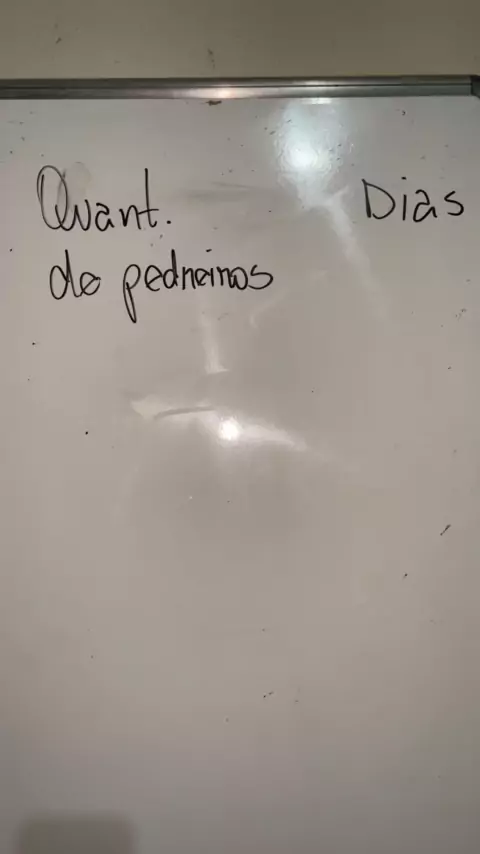 Quant. Dias
de pedreiros